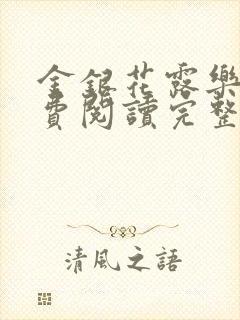 金銀花露樂
費閱讀完整
清風之語